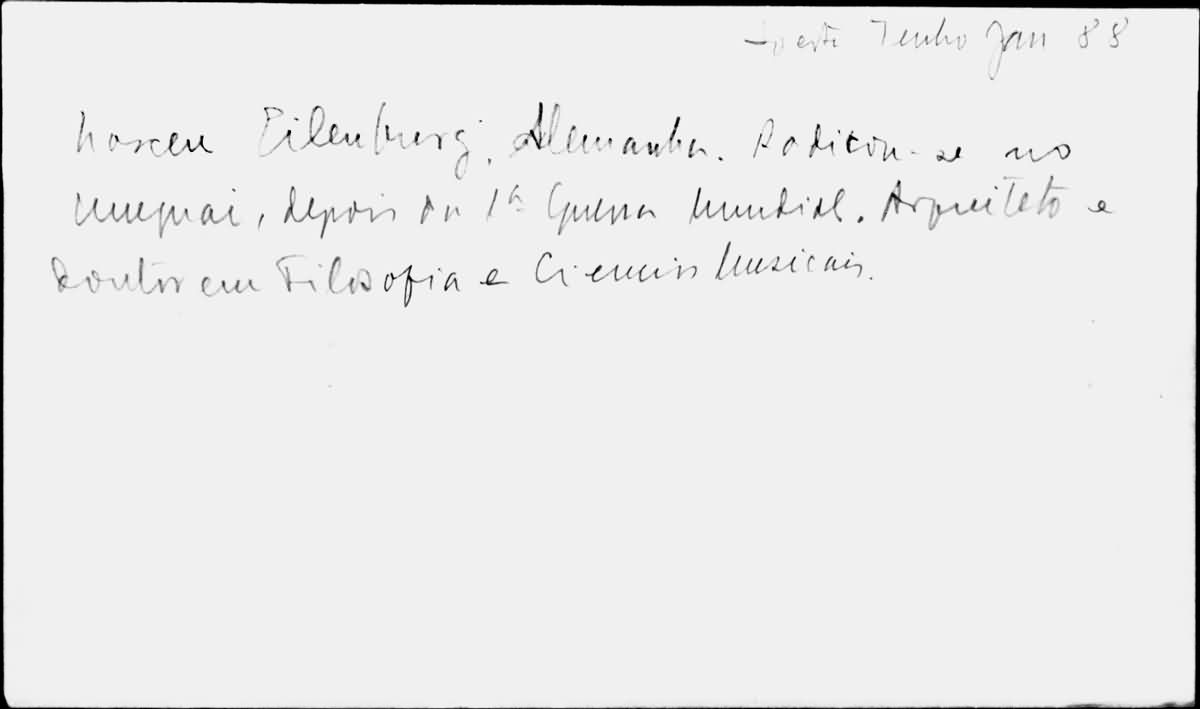 Tenho Jan 88
Nasceu Eilenburg, Alemanha. Radicou-se no
Uruguai, depois da 1ª Guerra Mundial. Arquiteto e
Doutor em Filosofia e Ciencias Musicais.